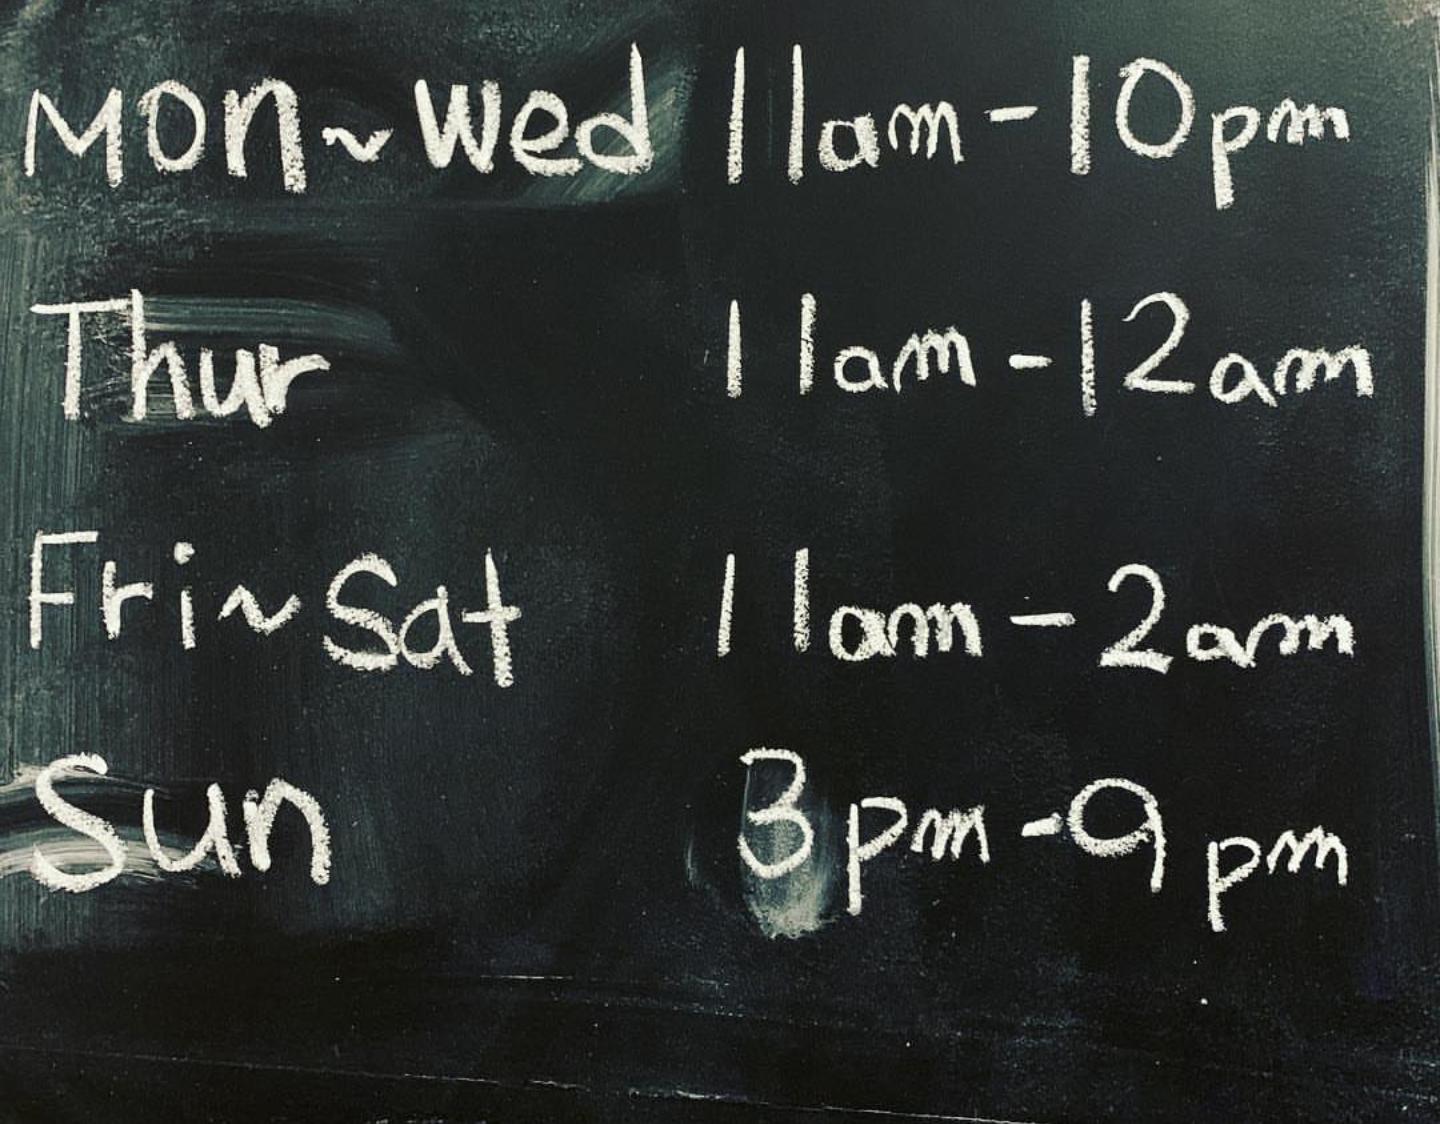 Mon~Wed 11am-10pm
Thur 11am-12am
Fri~Sat 11am-2am
Sun 3pm-9pm